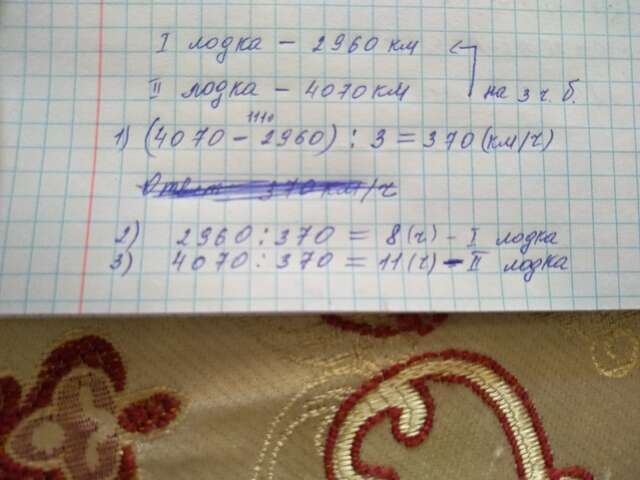 I лодка – 2960 км
II лодка – 4070 км на 3 ч. б.
1110
1) (4070 – 2960) : 3 = 370 (км/ч)
Ответ 370 км/ч
2) 2960 : 370 = 8 (ч) – I лодка
3) 4070 : 370 = 11 (ч) – II лодка